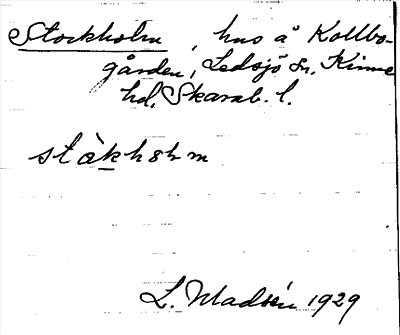 Stockholm, hus å Kollbo-
gården, Ledsjö sn. Kinne
hd, Skarab. l.
L. Madsén 1929